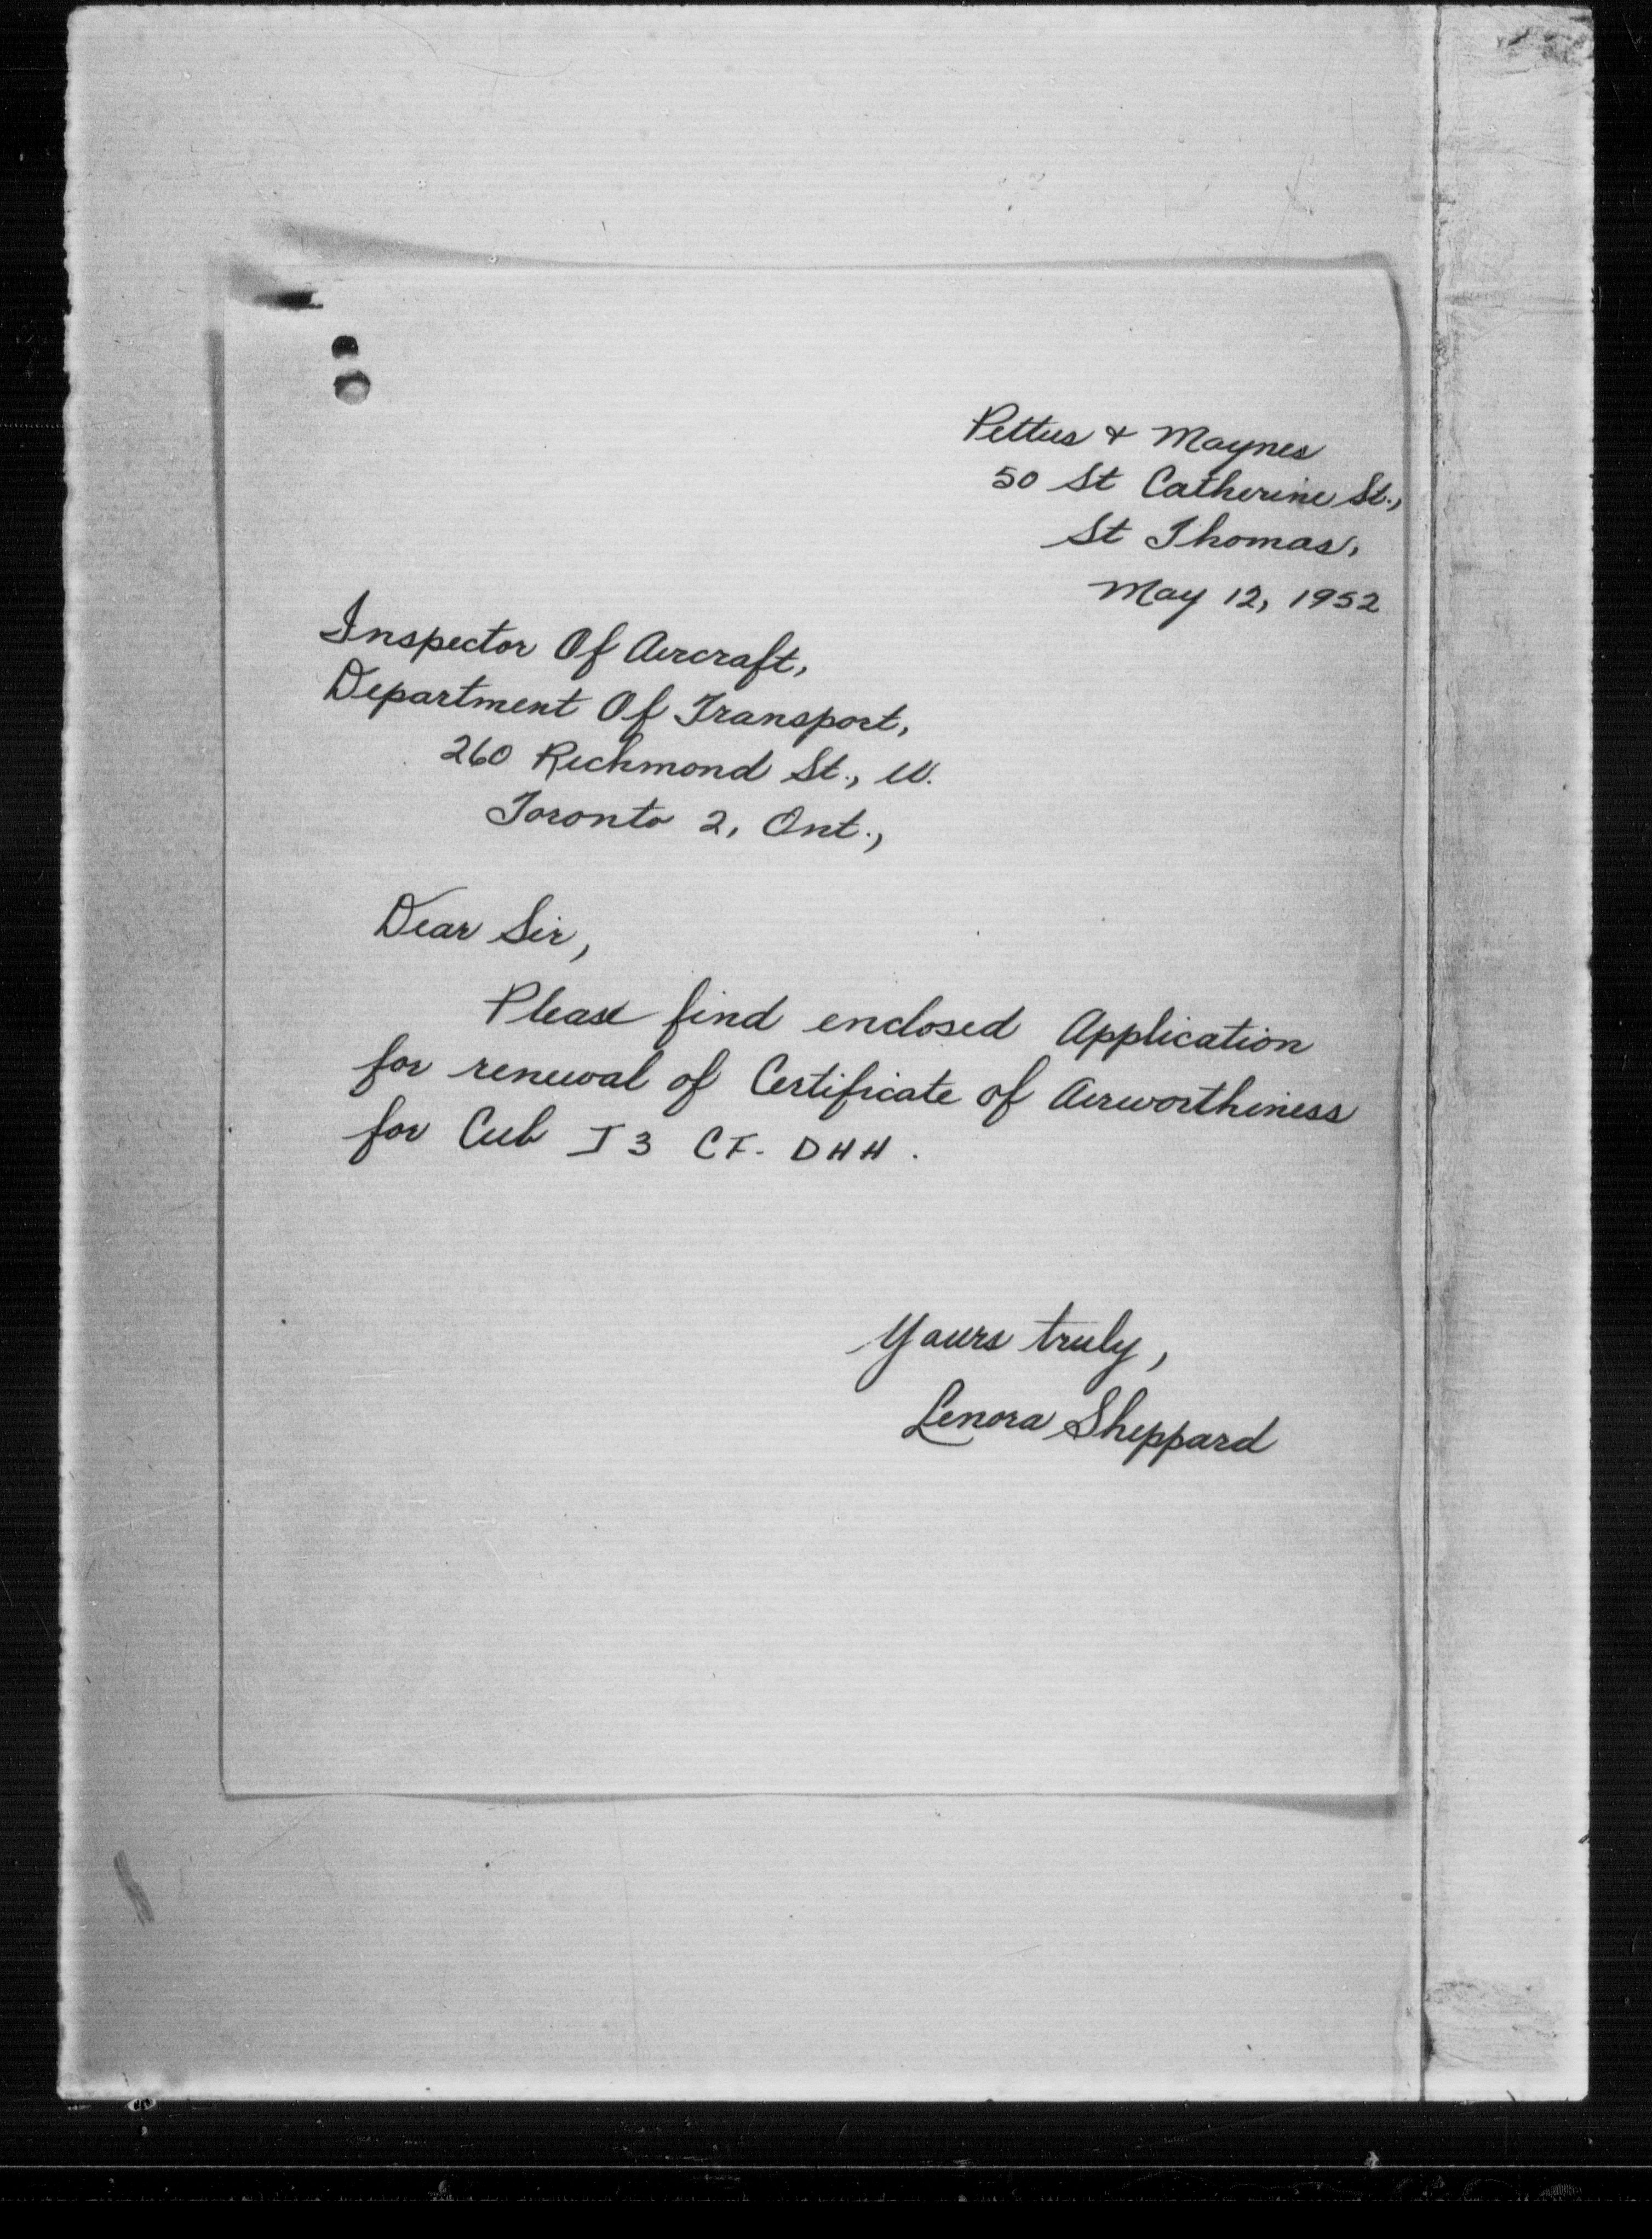 Pettus & Maynes
50 St Catherine St.,
St Thomas,
May 12, 1952
Inspector Of Aircraft,
Department Of Transport,
260 Richmond St., W.
Toronto 2, Ont.,
Dear Sir,
Please find enclosed Application
for renewal of Certificate of Airworthiness
for Cub J3 CF-DHH.
Yours truly,
Lenora Sheppard